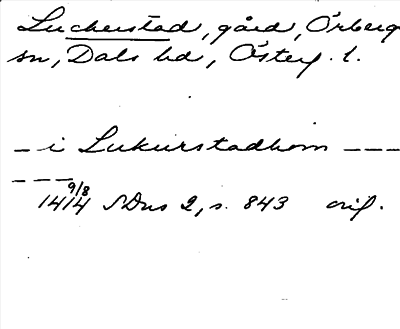 Luckerstad, gård, Örberga
sn, Dals hd, Österg. l.
_ i Lukurstadhom _ _ _
_ _ _
1414 9/8 SDns 2, s. 843 orig.